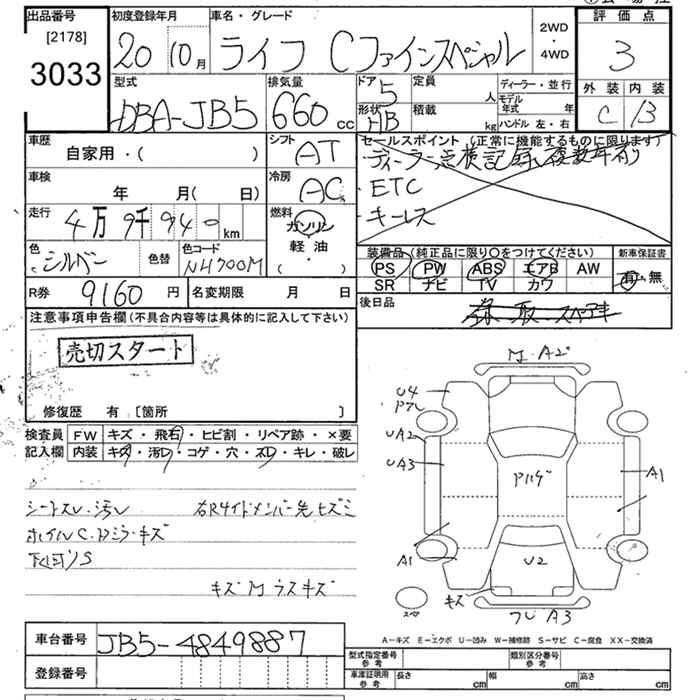 出品番号
[2178]
3033
初度登録年月
20 10月
車名・グレード
ライフ Cファインスペシャル
2WD
・
4WD
評価点
3
外装 内装
C B
型式
DBA-JB5
排気量
660 cc
ドア 5
形状 HB
定員 人
積載 kg
ディーラー・並行
モデル年式 年
ハンドル 左・右
車歴
自家用・( )
シフト
AT
セールスポイント (正常に機能するものに限ります)
・ディーラー点検記録 複数年有り
・ETC
・キーレス
車検
年 月( 日)
冷房
AC
走行
4万 9千 940 km
燃料
ガソリン
軽・油
( ・ )
色
シルバー
色替
色コード
NH700M
装備品(純正品に限り〇をつけてください)
PS PW ABS エアB AW
SR ナビ TV カワ
新車保証書
有・無
R券 9160 円
名変期限 月 日
後日品
注意事項申告欄(不具合内容等は具体的に記入して下さい)
売切スタート
修復歴 有 [箇所 ]
検査員 FW キズ・飛石・ヒビ割・リペア跡・×要
記入欄 内装 キズ・汚レ・コゲ・穴・スレ・キレ・破レ
シートスレ・汚レ 右Rサイドメンバー先ヒズミ
ホイルC.Dミラーキズ
下回りS
キズM ラスキズ
M A2
U4
UA2
UA3
A1
A1
U2
キズ
A3
スペ
A-キズ E-エクボ U-凹み W-補修跡 S-サビ C-腐食 XX-交換済
車台番号 JB5-4849887
登録番号
型式指定番号 参考
類別区分番号 参考
車庫証明用 参考 長さ cm 幅 cm 高さ cm